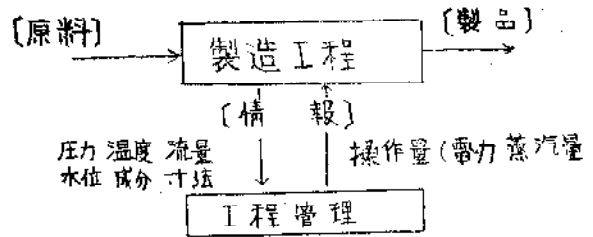 [原料]
[製品]
製造工程
[情 報]
圧力 温度 流量
水位 成分 寸法
操作量(電力 蒸汽量
工程管理